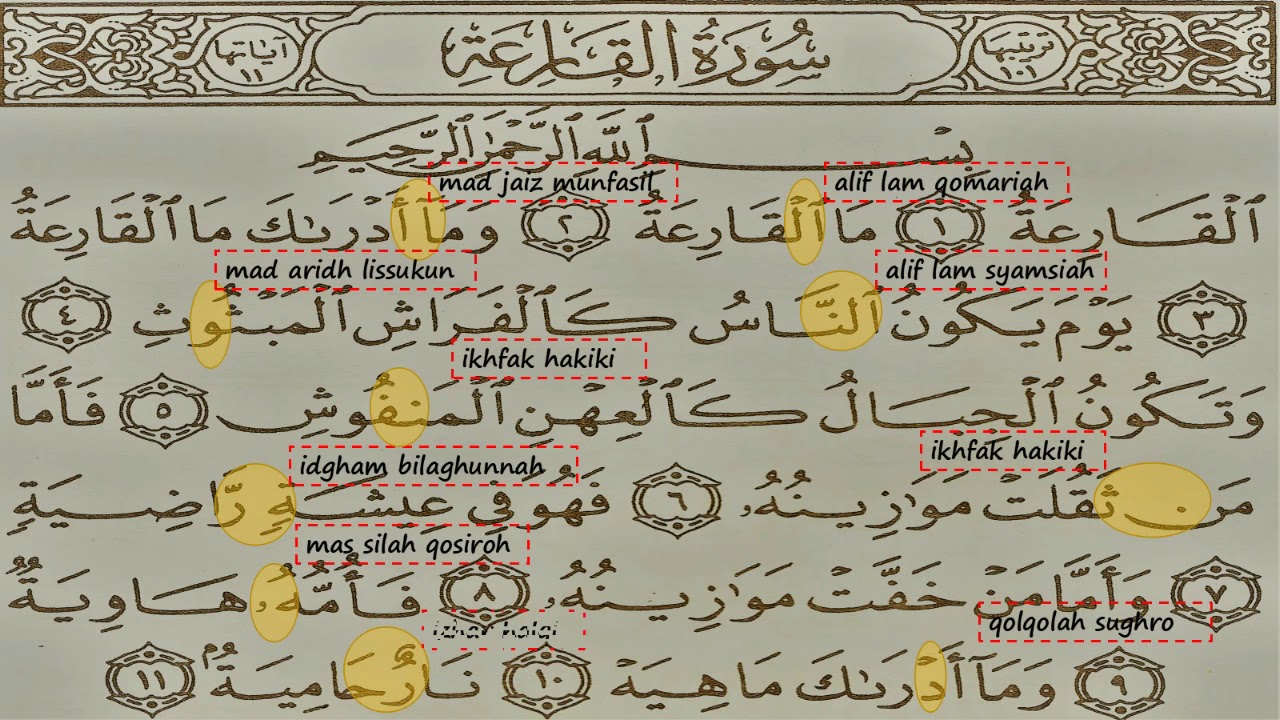 ترتيبها ١٠١ سُورَةُ القَارِعَةِ آياتها ١١
بِسْمِ ٱللَّهِ ٱلرَّحْمَٰنِ ٱلرَّحِيمِ
mad jaiz munfasil alif lam qomariah
ٱلْقَارِعَةُ ١ مَا ٱلْقَارِعَةُ ٢ وَمَآ أَدْرَىٰكَ مَا ٱلْقَارِعَةُ
mad aridh lissukun alif lam syamsiah
٣ يَوْمَ يَكُونُ ٱلنَّاسُ كَٱلْفَرَاشِ ٱلْمَبْثُوثِ ٤
ikhfak hakiki
وَتَكُونُ ٱلْجِبَالُ كَٱلْعِهْنِ ٱلْمَنفُوشِ ٥ فَأَمَّا
idgham bilaghunnah ikhfak hakiki
مَن ثَقُلَتْ مَوَٰزِينُهُۥ ٦ فَهُوَ فِي عِيشَةٍ رَّاضِيَةٍ
mas silah qosiroh
٧ وَأَمَّا مَنْ خَفَّتْ مَوَٰزِينُهُۥ ٨ فَأُمُّهُۥ هَاوِيَةٌ
izhar halqi qolqolah sughro
٩ وَمَآ أَدْرَىٰكَ مَا هِيَهْ ١٠ نَارٌ حَامِيَةٌۢ ١١